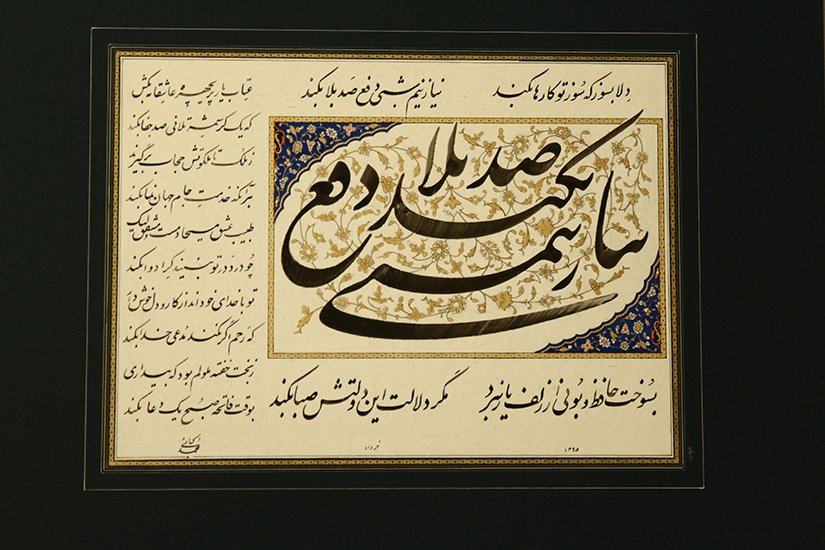 دلا بسوز که سوز تو کارها بکند
نیاز نیم شبی دفع صد بلا بکند
عتاب یار پریچهره عاشقانه بکش
که یک کرشمه تلافی صد جفا بکند
ز ملک تا ملکوتش حجاب برگیرند
هر آنکه خدمت جام جهان نما بکند
طبیب عشق مسیحا دمست و مشفق لیک
چو درد در تو نبیند کرا دوا بکند
تو با خدای خود انداز کار و دل خوش دار
که رحم اگر نکند مدعی خدا بکند
ز بخت خفته ملولم بود که بیداری
بوقت فاتحه صبح یک دعا بکند
نیاز نیم شبی دفع صد بلا بکند
بسوخت حافظ و بوئی از زلف یار نبرد
مگر دلالت این دولتش صبا بکند
۱۳۹۵